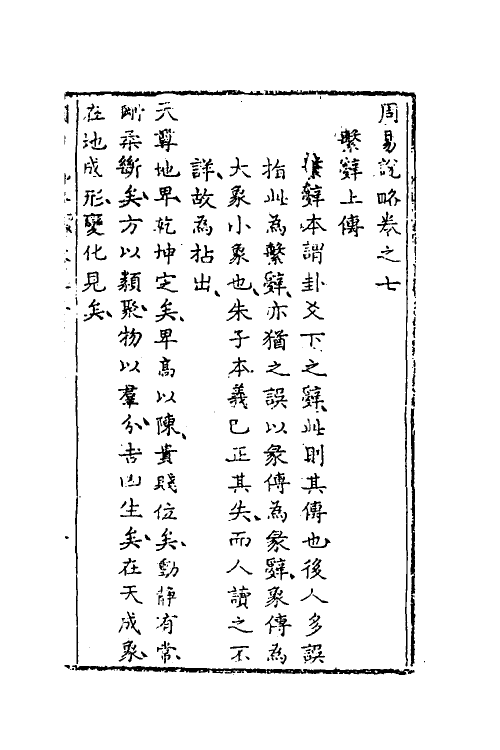 周易說略卷之七
繫辭上傳
繫辭本謂卦爻下之辭此則其傳也後人多誤
指此為繫辭亦猶之誤以彖傳為彖辭象傳為
大象小象也朱子本義已正其失而人讀之不
詳故為拈出
天尊地卑乾坤定矣卑高以陳貴賤位矣動靜有常
剛柔斷矣方以類聚物以羣分吉凶生矣在天成象
在地成形變化見矣